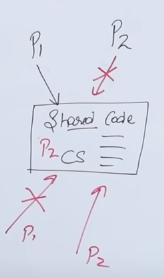 P1 P2
Shared Code
P2 CS
P1
P2